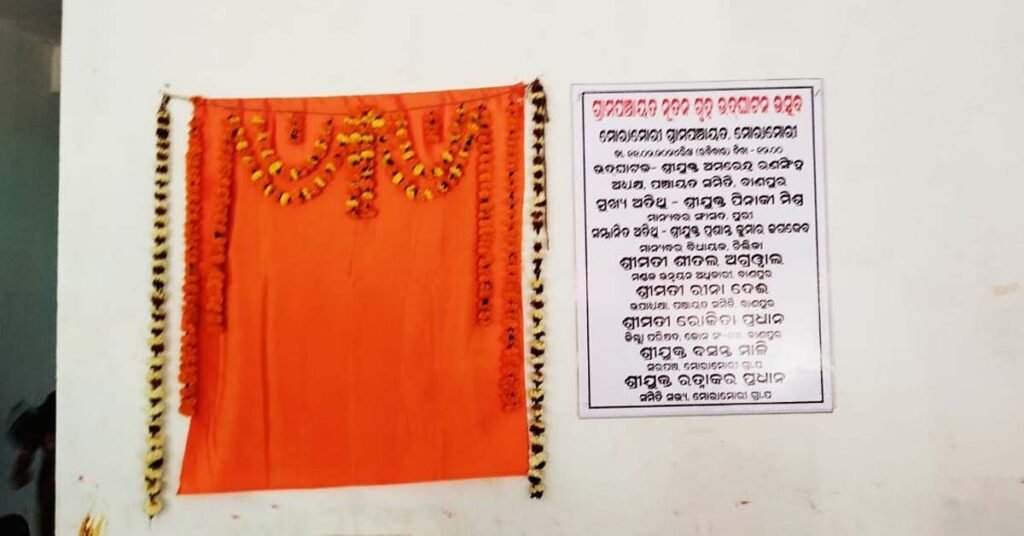 ଗ୍ରାମପଞ୍ଚାୟତ ନୂତନ ଗୃହ ଉଦଘାଟନ ଉତ୍ସବ
ମୋରାମୋରୀ ଗ୍ରାମପଞ୍ଚାୟତ, ମୋରାମୋରୀ
ଉଦଘାଟକ- ଶ୍ରୀଯୁକ୍ତ ଅମରେନ୍ଦ୍ର ରଣସିଂହ
ଅଧ୍ୟକ୍ଷ, ପଞ୍ଚାୟତ ସମିତି, ବାଣପୁର
ମୁଖ୍ୟ ଅତିଥି - ଶ୍ରୀଯୁକ୍ତ ପିନାକୀ ମିଶ୍ର
ମାନ୍ୟବର ସାଂସଦ, ପୁରୀ
ସମ୍ମାନିତ ଅତିଥି - ଶ୍ରୀଯୁକ୍ତ ପ୍ରଶାନ୍ତ କୁମାର ଜଗଦେବ
ମାନ୍ୟବର ବିଧାୟକ, ଚିଲିକା
ଶ୍ରୀମତୀ ଶୀତଲ ଅଗ୍ରୱାଲ
ମଣ୍ଡଳ ଉନ୍ନୟନ ଅଧିକାରୀ, ବାଣପୁର
ଶ୍ରୀମତୀ ରୀନା ଦେଈ
ଉପାଧ୍ୟକ୍ଷା, ପଞ୍ଚାୟତ ସମିତି, ବାଣପୁର
ଶ୍ରୀମତୀ ରୋଜିତା ପ୍ରଧାନ
ଜିଲ୍ଲା ପରିଷଦ, ଜୋନ ବାଣପୁର
ଶ୍ରୀଯୁକ୍ତ ବସନ୍ତ ମାଳି
ସରପଞ୍ଚ, ମୋରାମୋରୀ ଗ୍ରା.ପ
ଶ୍ରୀଯୁକ୍ତ ରତ୍ନାକର ପ୍ରଧାନ
ସମିତି ସଭ୍ୟ, ମୋରାମୋରୀ ଗ୍ରା.ପ